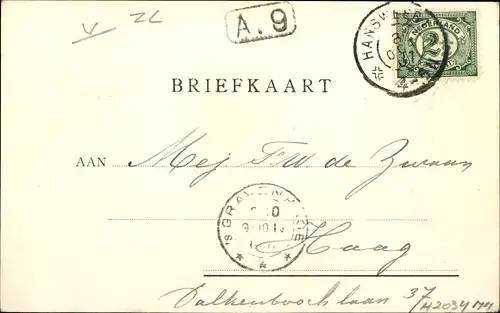 V ZL
A.9
HANSWEERT
NEDERLAND
2½
BRIEFKAART
AAN Mej FW de Zwaan
'S GRAVENHAGE
Haag
Valkenboschlaan 37
H2034